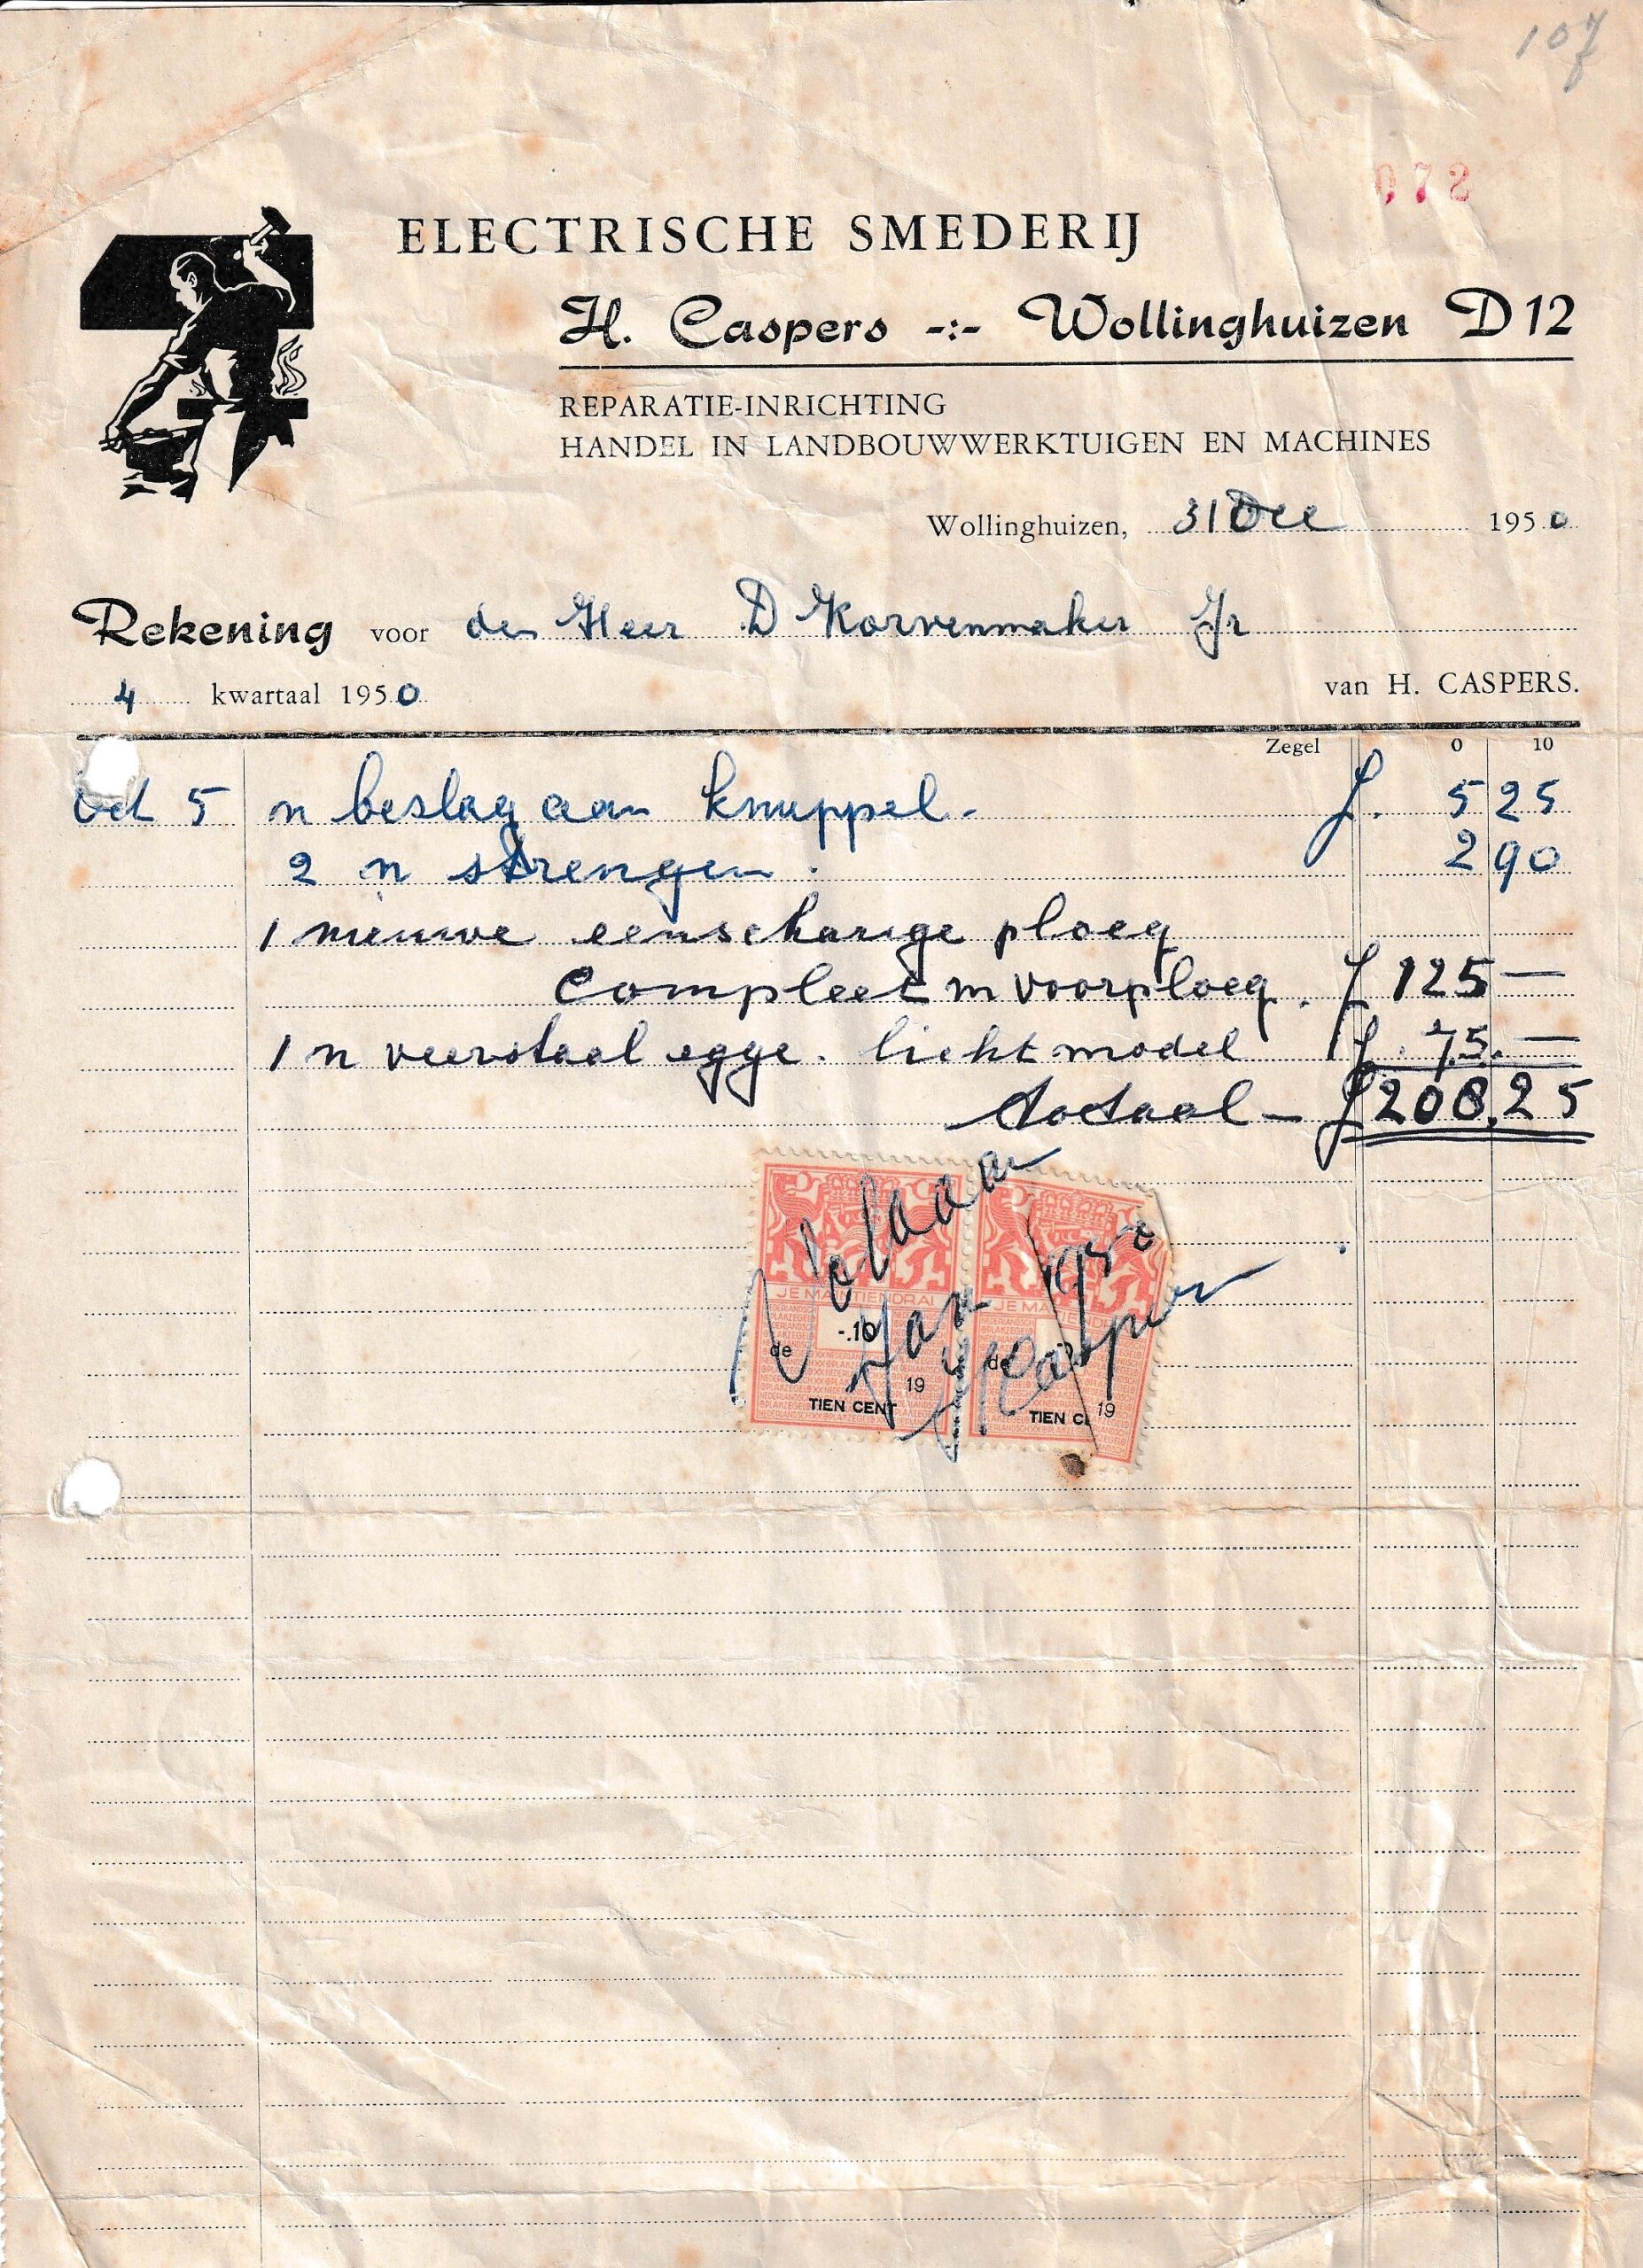 107
072
ELECTRISCHE SMEDERIJ
H. Caspers -:- Wollinghuizen D 12
REPARATIE-INRICHTING
HANDEL IN LANDBOUWWERKTUIGEN EN MACHINES
Wollinghuizen, 31 Dec 1950
Rekening voor den Heer D Korvenmaker Jr
4 kwartaal 1950 van H. CASPERS.
Zegel 0 10
Oct 5 n beslag aan knuppel. f. 5 25
2 n strengen. 2 90
1 nieuwe eenscharige ploeg
Compleet m voorploeg. f 125 —
1 n veerstaal egge. licht model f. 75. —
totaal — f 208,25
Voldaan
Jan 195
HCaspers
JE MAINTIENDRAI JE MAINTIENDRAI
-.10
de 19 de 19
TIEN CENT TIEN CE